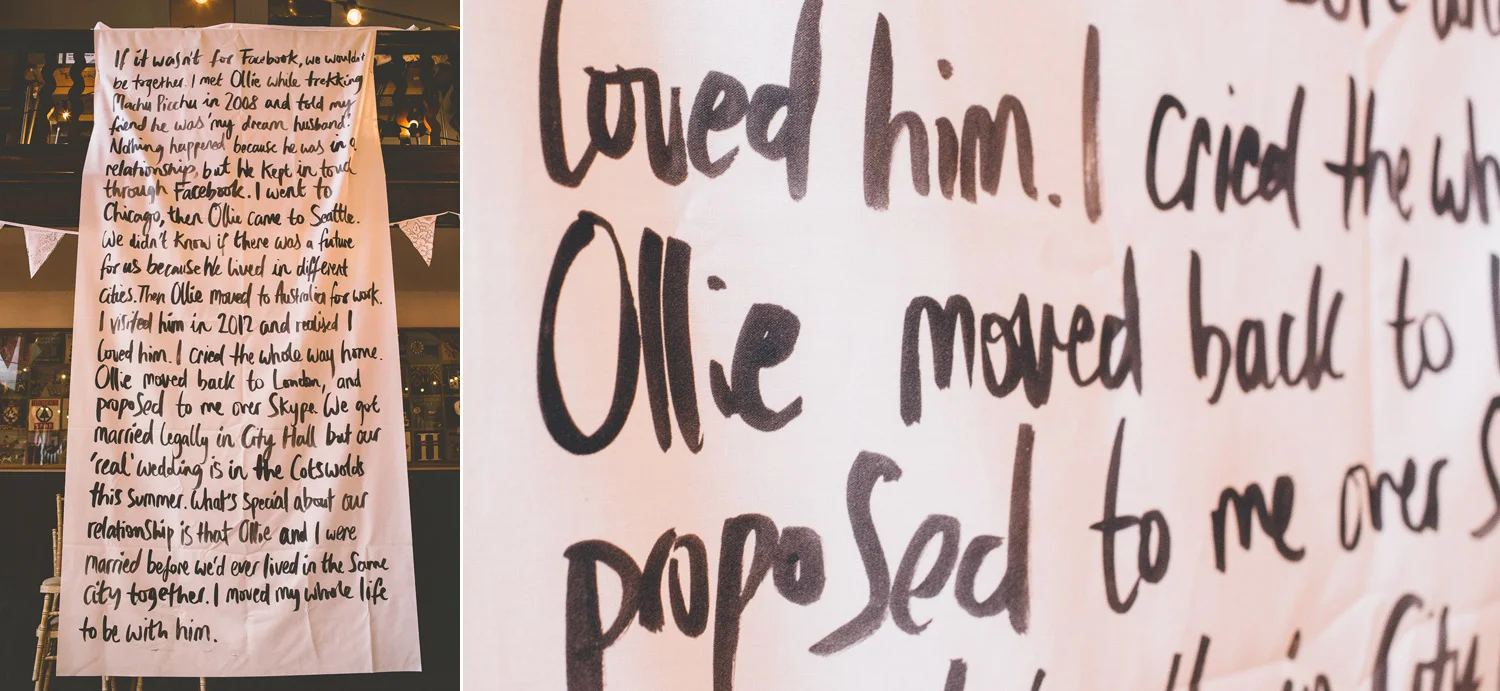 If it wasn't for Facebook, we wouldn't
be together. I met Ollie while trekking
Machu Picchu in 2008 and told my
friend he was 'my dream husband'.
Nothing happened because he was in a
relationship, but he kept in touch
through Facebook. I went to
Chicago, then Ollie came to Seattle.
We didn't know if there was a future
for us because we lived in different
cities. Then Ollie moved to Australia for work.
I visited him in 2012 and realised I
loved him. I cried the whole way home.
Ollie moved back to London, and
proposed to me over Skype. We got
married legally in City Hall but our
'real' wedding is in the Cotswolds
this summer. What's special about our
relationship is that Ollie and I were
married before we'd ever lived in the same
city together. I moved my whole life
to be with him.
loved him. I cried the wh
Ollie moved back to
proposed to me over S
in City